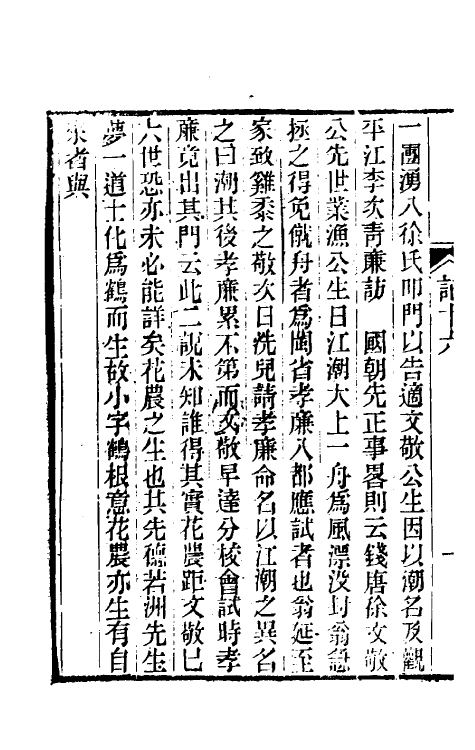 記十六
一團湧入徐氏叩門以告適文敬公生因以潮名及觀
平江李次青廉訪 國朝先正事畧則云錢唐徐文敬
公先世業漁公生日江潮大上一舟為風漂沒封翁急
拯之得免僦舟者為閩省孝廉入都應試者也翁延至
家致雞黍之敬次日洗兒請孝廉命名以江潮之異名
之曰潮其後孝廉累不第而文敬早達分校會試時孝
廉竟出其門云此二說未知誰得其實花農距文敬已
六世恐亦未必能詳矣花農之生也其先德若洲先生
夢一道士化為鶴而生故小字鶴根意花農亦生有自
來者與